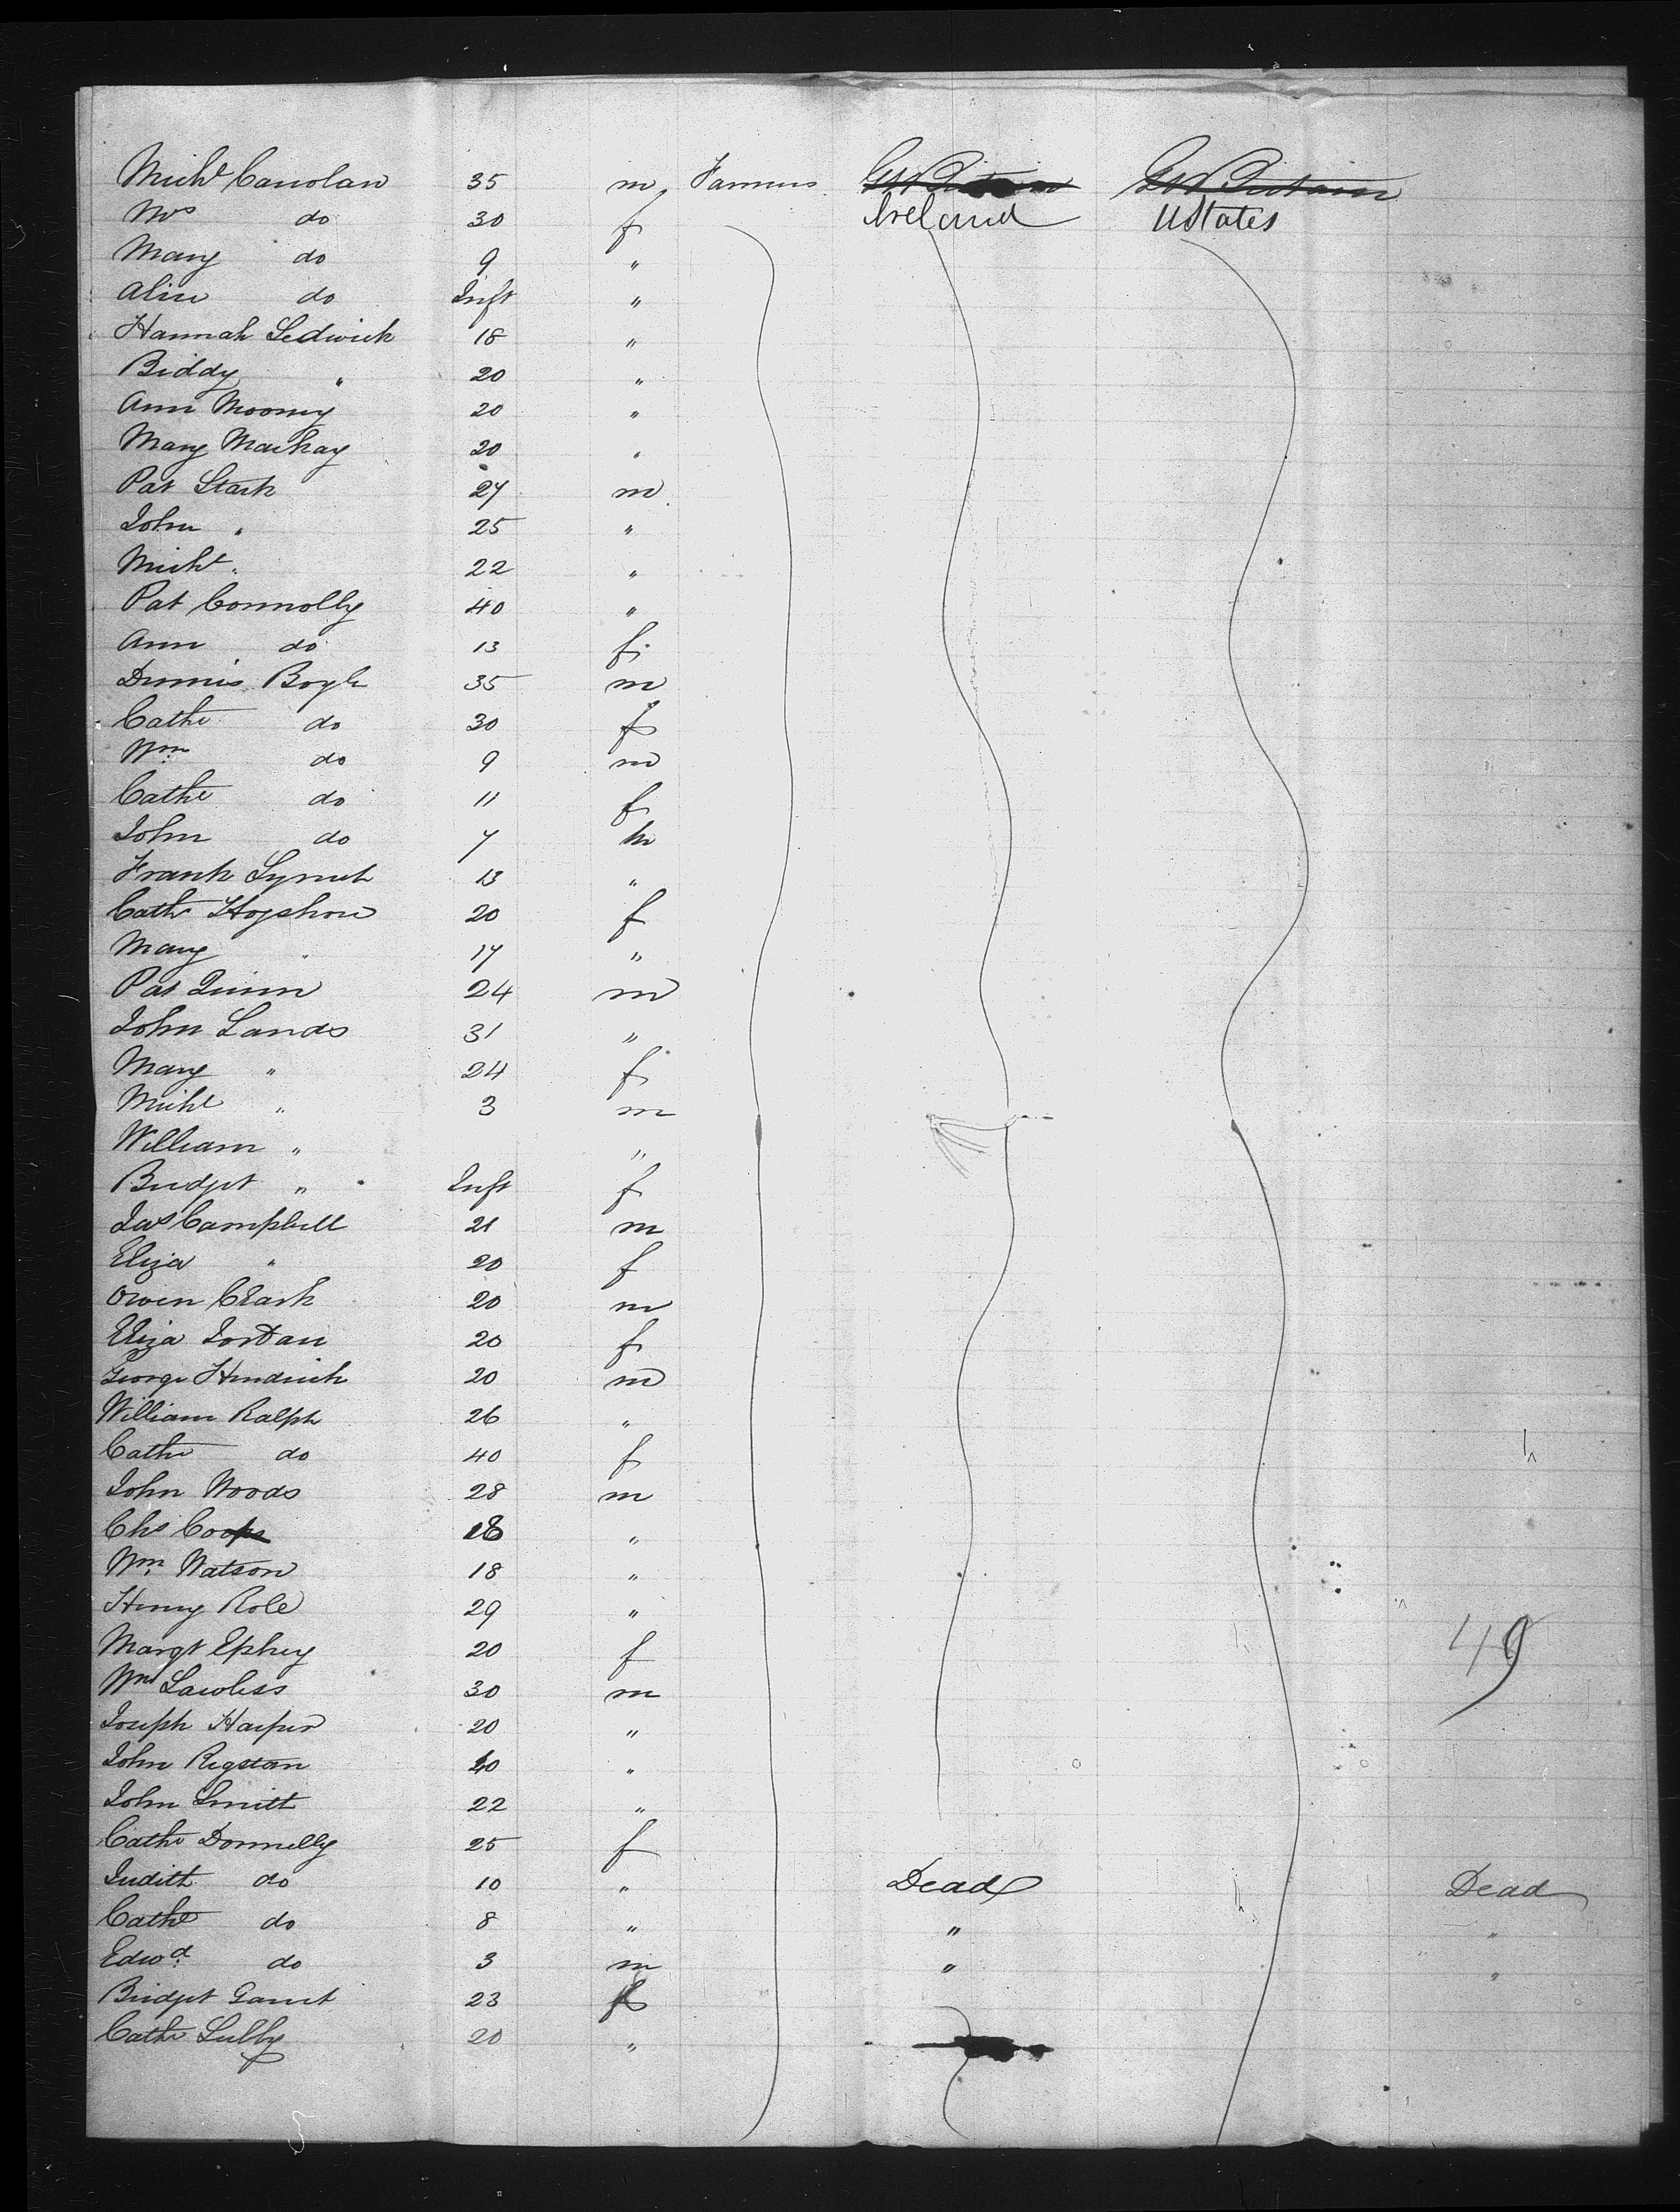 Michl Carrolan 35 m Farmers Gt Britain Gt Britain
Mrs do 30 f Ireland UStates
Mary do 9 "
Alice do Inft "
Hannah Sedwick 18 "
Biddy " 20 "
Ann Mooney 20 "
Mary Mackay 20 "
Pat Stark 27 m
John " 25 "
Michl " 22 "
Pat Connolly 40 "
Ann do 13 f
Dennis Boyle 35 m
Cathe do 30 f
Wm do 9 m
Cathe do 11 f
John do 7 m
Frank Lynch 13 "
Cathe 20 f
Mary " 17 "
Pat Quinn 24 m
John Sands 31 "
Mary " 24 f
Michl " 3 m
William " "
Bridget " Inft f
Jas Campbell 21 m
Eliza " 20 f
Owen Clark 20 m
Eliza Jordan 20 f
George Hendrick 20 m
William Ralph 26 "
Cathe do 40 f
John Woods 28 m
Chs 18 "
Wm Watson 18 "
Henry Role 29 "
Margt Ephey 20 f
Wm Lawless 30 m
49
Joseph Harper 20 "
John Rigstan 40 "
John Smitt 22 "
Cathe Donnelly 25 f
Judith do 10 " Dead Dead
Cathe do 8 " " "
Edwd do 3 m " "
Bridget Garret 23 f
Cathe Lubby 20 "